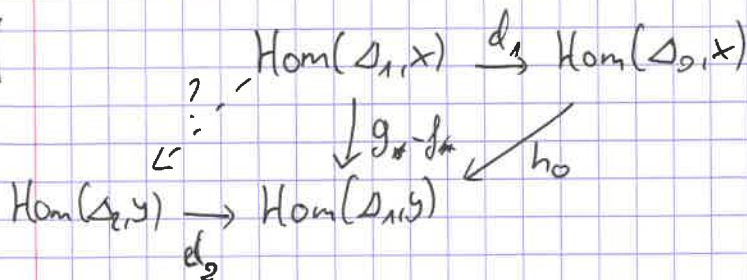 Hom(Δ₁,X) d₁ Hom(Δ₀,X)
?
g* - f* h₀
Hom(Δ₂,y) Hom(Δ₁,y)
d₂